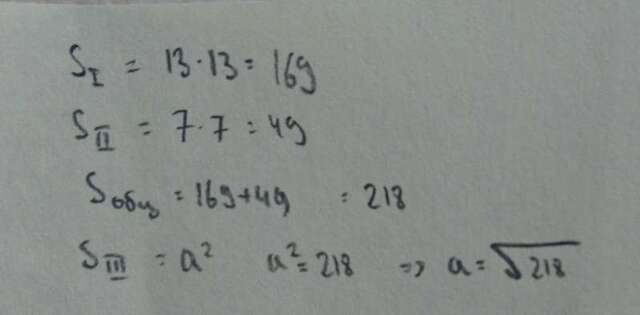 S_I = 13·13 = 169
S_II = 7·7 = 49
S_общ = 169+49 = 218
S_III = a² a² = 218 => a = √218